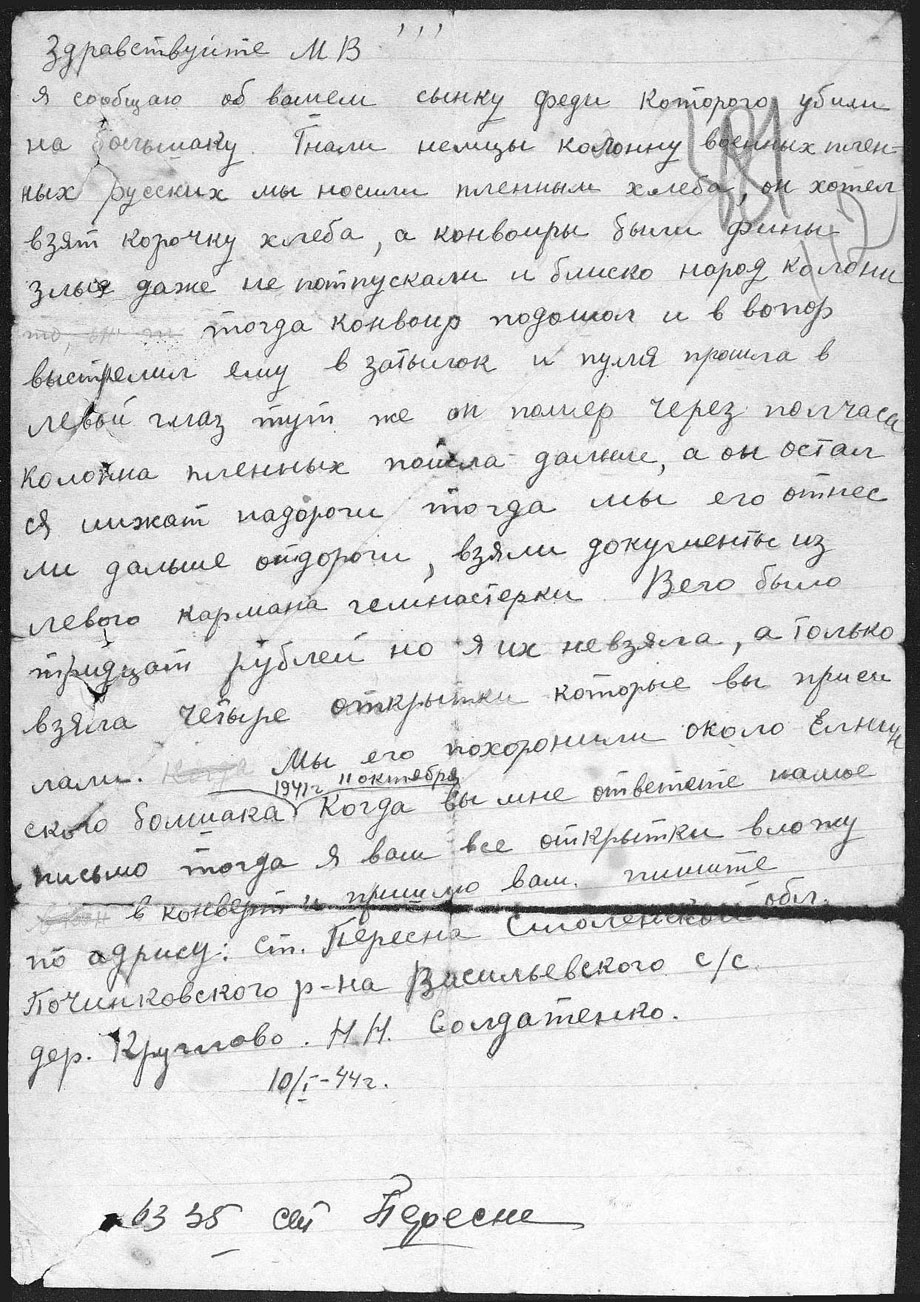 Здравствуйте М В !!!
я сообщаю об вашем сынку феди которого убили
на большаку. Гнали немцы колонну военных плен-
ных русских мы носили пленным хлеба, он хотел
взят корочку хлеба, а конвоиры были фины
злые даже не потпускали и блиско народ колони
тогда конвоир подошол и в вопор
выстрелил ему в затылок и пуля прошла в
левый глаз тут же он помер через полчаса
колонна пленных пошла дальше, а он остал
ся лижат надороги тогда мы его отнес
ли дальше отдороги, взяли документы из
левого кармана гемнастерки. Вего было
тридцат рублей но я их невзяла, а только
взяла четыре открытки которые вы приси
лали. Мы его похоронили около Елнин
1941 г 11 октября
ского болшака Когда вы мне ответете намое
письмо тогда я вам все открытки вложу
в конверт и пришлю вам. пишите
по адрису: ст. Пересна Смоленской обл.
Починковского р-на Васильевского с/с
дер. Круглово. Н.Н. Солдатенко.
10/I-44г.
Пересне